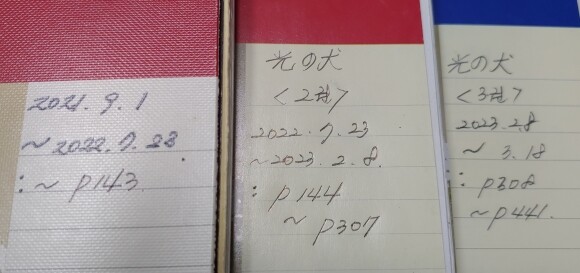 2021.9.1
~2022.7.23
:~P143.
光の犬
<2권>
2022.7.23
~2023.2.8.
: P144
~P307
光の犬
<3권>
2023.2.8
~3.18
: P308
~P441.